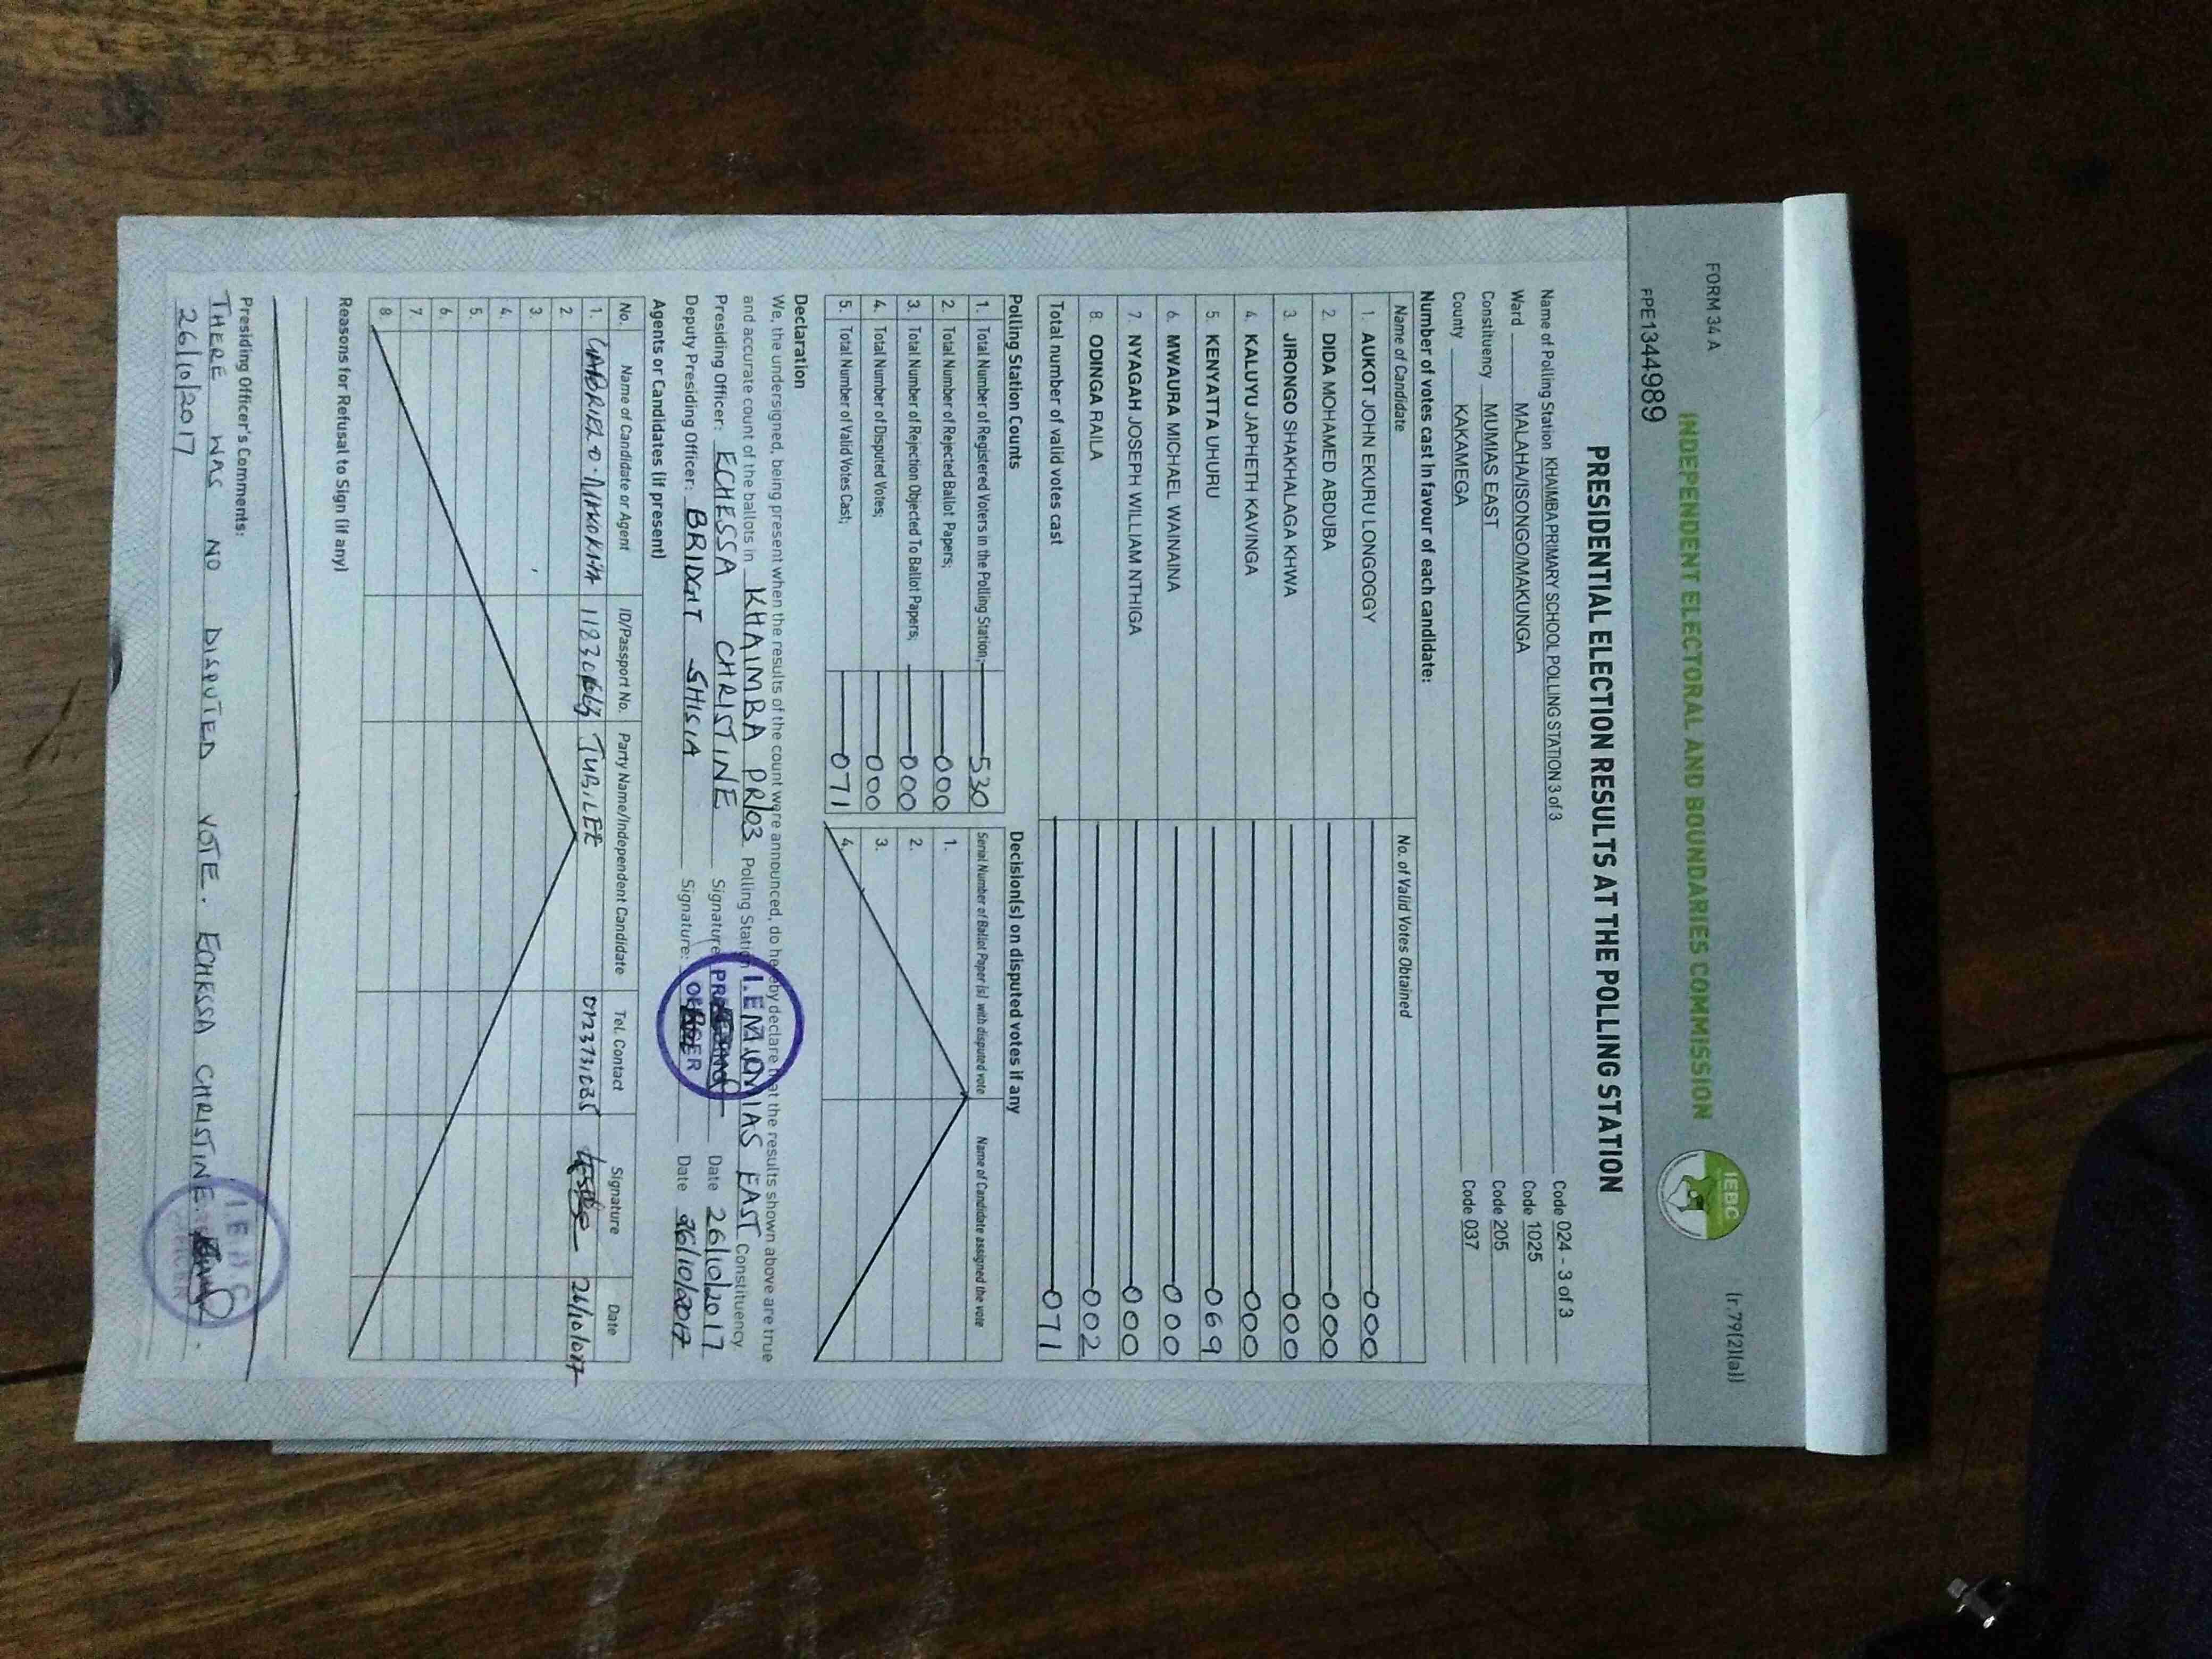 FORM 34 A
(r.79(2)(a))
INDEPENDENT ELECTORAL AND BOUNDARIES COMMISSION
IEBC
FPE1344989
PRESIDENTIAL ELECTION RESULTS AT THE POLLING STATION
Name of Polling Station KHAIMBA PRIMARY SCHOOL POLLING STATION 3 of 3 Code 024 - 3 of 3
Ward MALAHA/ISONGO/MAKUNGA Code 1025
Constituency MUMIAS EAST Code 205
County KAKAMEGA Code 037
Number of votes cast in favour of each candidate:
Name of Candidate No. of Valid Votes Obtained
1. AUKOT JOHN EKURU LONGOGGY 000
2. DIDA MOHAMED ABDUBA 000
3. JIRONGO SHAKHALAGA KHWA 000
4. KALUYU JAPHETH KAVINGA 000
5. KENYATTA UHURU 069
6. MWAURA MICHAEL WAINAINA 000
7. NYAGAH JOSEPH WILLIAM NTHIGA 000
8. ODINGA RAILA 002
Total number of valid votes cast 071
Polling Station Counts
1. Total Number of Registered Voters in the Polling Station; 530
2. Total Number of Rejected Ballot Papers; 000
3. Total Number of Rejection Objected To Ballot Papers; 000
4. Total Number of Disputed Votes; 000
5. Total Number of Valid Votes Cast; 071
Decision(s) on disputed votes if any
Serial Number of Ballot Paper(s) with disputed vote Name of Candidate assigned the vote
1.
2.
3.
4.
Declaration
We, the undersigned, being present when the results of the count were announced, do hereby declare that the results shown above are true
and accurate count of the ballots in KHAIMBA PR/03 Polling Station MUMIAS EAST Constituency
Presiding Officer: ECHESSA CHRISTINE Signature: Date 26/10/2017
Deputy Presiding Officer: BRIDGIT SHISIA Signature: Date 26/10/2017
Agents or Candidates (if present)
No. Name of Candidate or Agent ID/Passport No. Party Name/Independent Candidate Tel. Contact Signature Date
1. GABRIEL O. TUBILEE 26/10/2017
2.
3.
4.
5.
6.
7.
8.
Reasons for Refusal to Sign (if any)
Presiding Officer's Comments:
THERE WAS NO DISPUTED VOTE. ECHESSA CHRISTINE.
26/10/2017